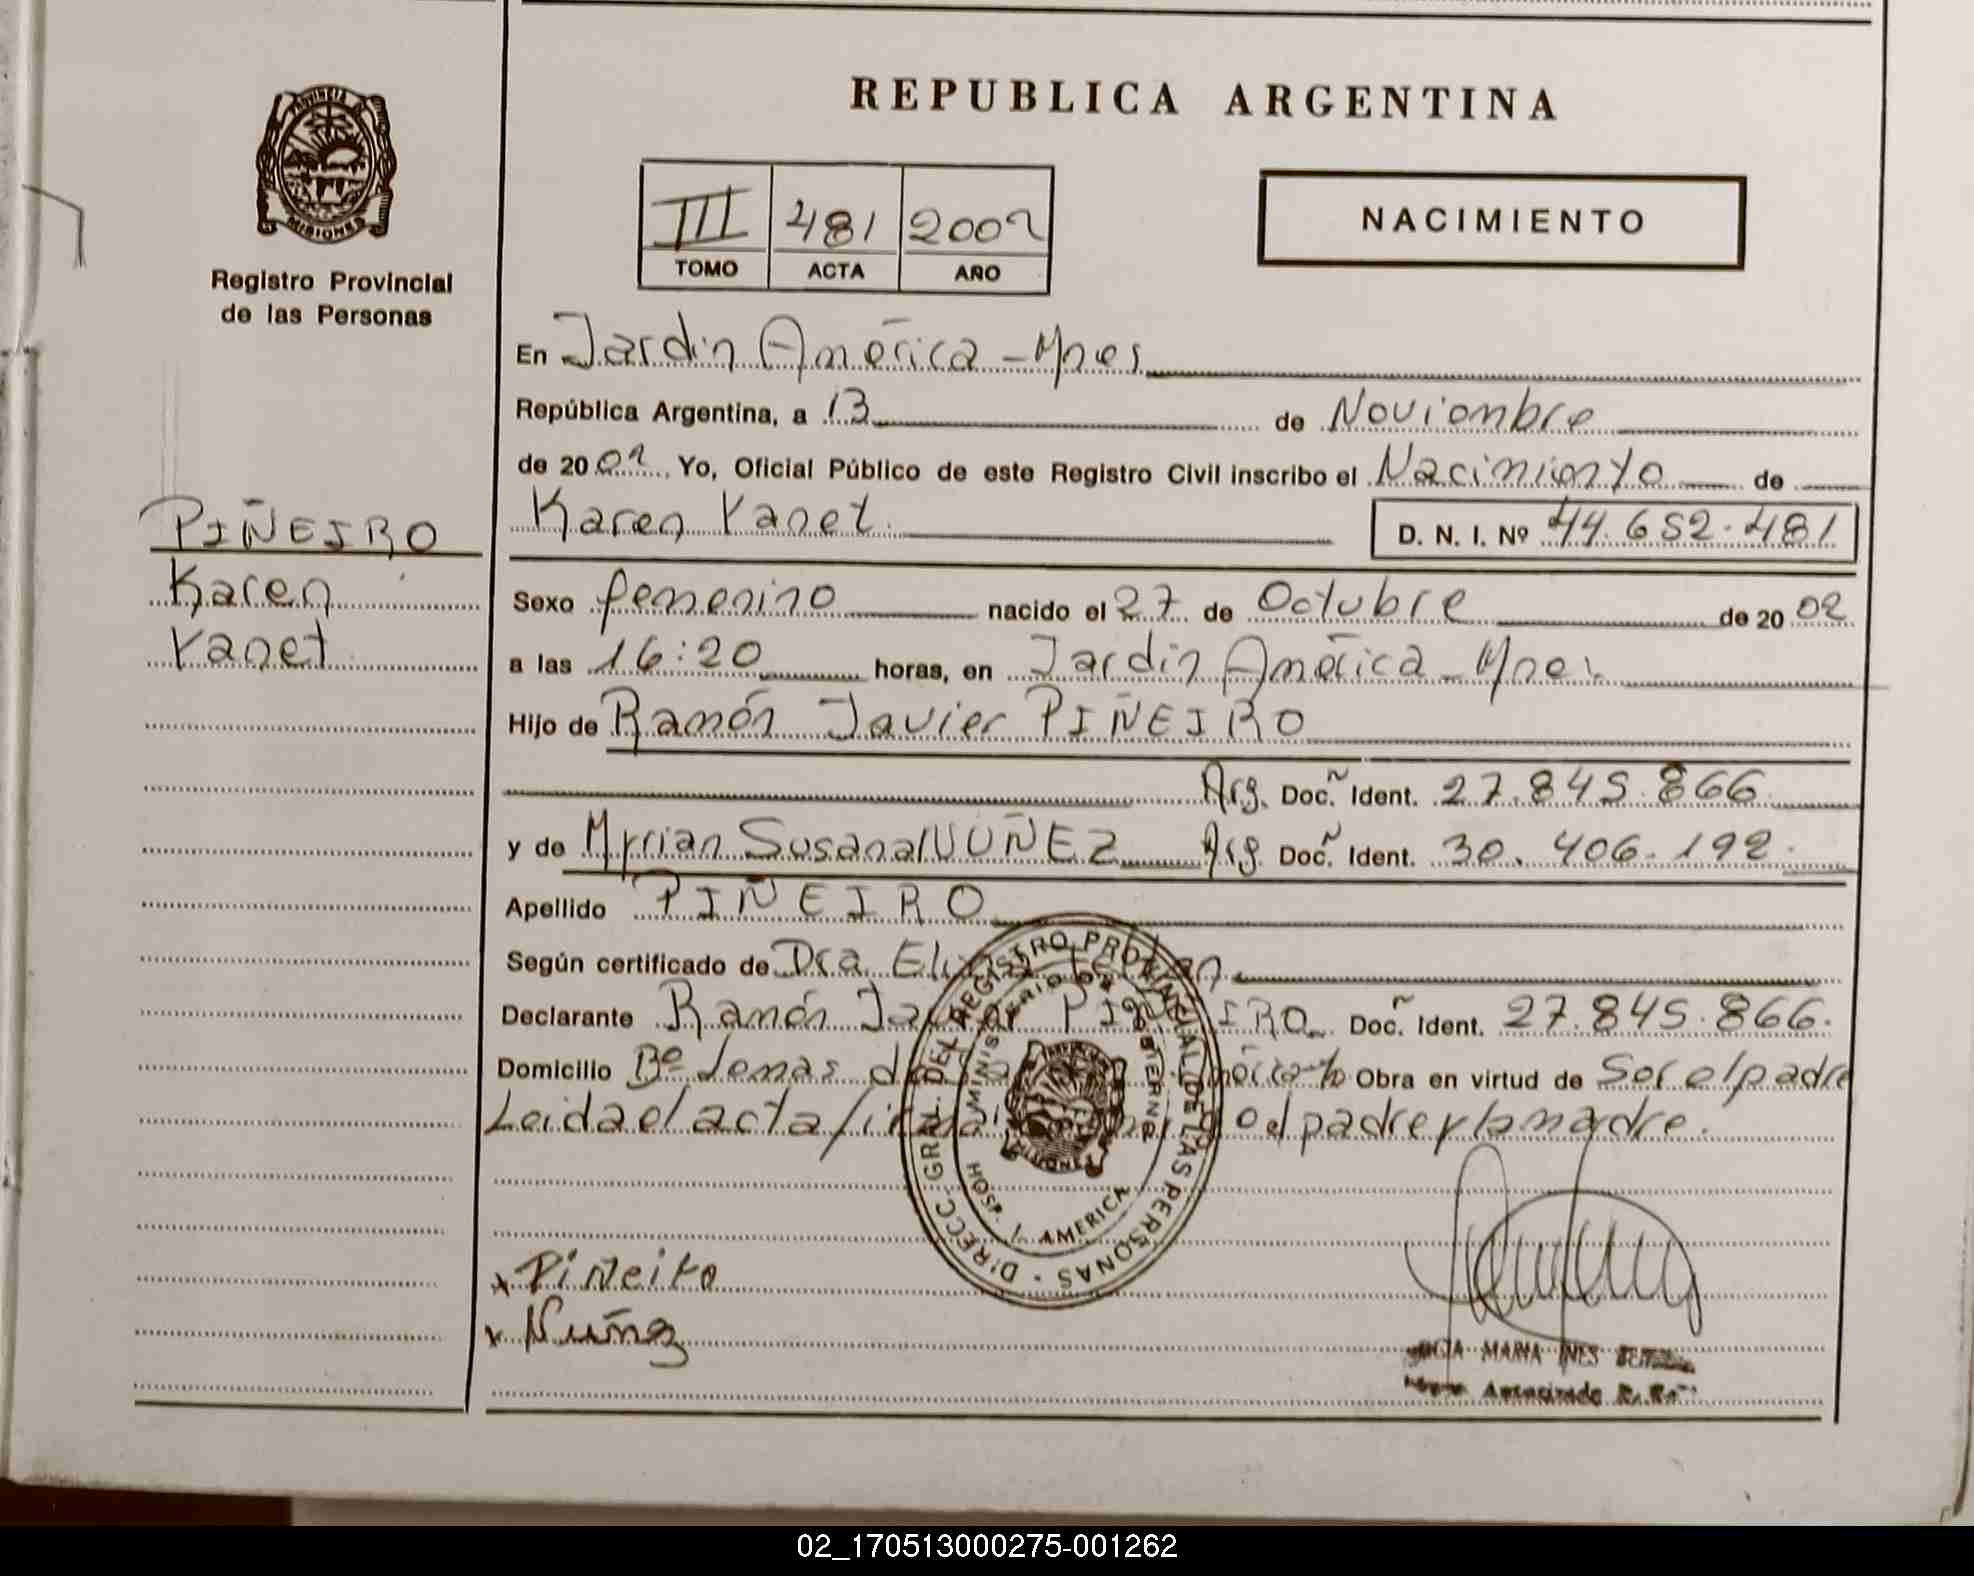 REPUBLICA ARGENTINA
PROVINCIA DE MISIONES
Registro Provincial
de las Personas
III 481 2002
TOMO ACTA AÑO
NACIMIENTO
En Jardín América - Mnes
República Argentina, a 13 de Noviembre
de 2002 Yo, Oficial Público de este Registro Civil inscribo el Nacimiento de
Karen Yanet D. N. I. Nº 44.652.481
PIÑEIRO
Karen
Yanet
Sexo femenino nacido el 27 de Octubre de 2002
a las 16:20 horas, en Jardín América - Mnes
Hijo de Ramón Javier PIÑEIRO
Arg. Doc. Ñ Ident. 27.845.866
y de Myrian Susana NUÑEZ Arg. Doc. Ñ Ident. 30.406.192.
Apellido PIÑEIRO
Según certificado de Dra
Declarante Ramón Javier PIÑEIRO Doc. Ñ Ident. 27.845.866.
Domicilio Bº Lomas Obra en virtud de Ser el padre
Leida el acta el padre y la madre.
DIRECC. GRAL. DEL REGISTRO PROVINCIAL DE LAS PERSONAS
MINISTERIO DE GOBIERNO
HOSP. J. AMERICA
MISIONES
x Piñeiro
x Nuñez
MARIA INES
Autorizado
02_170513000275-001262